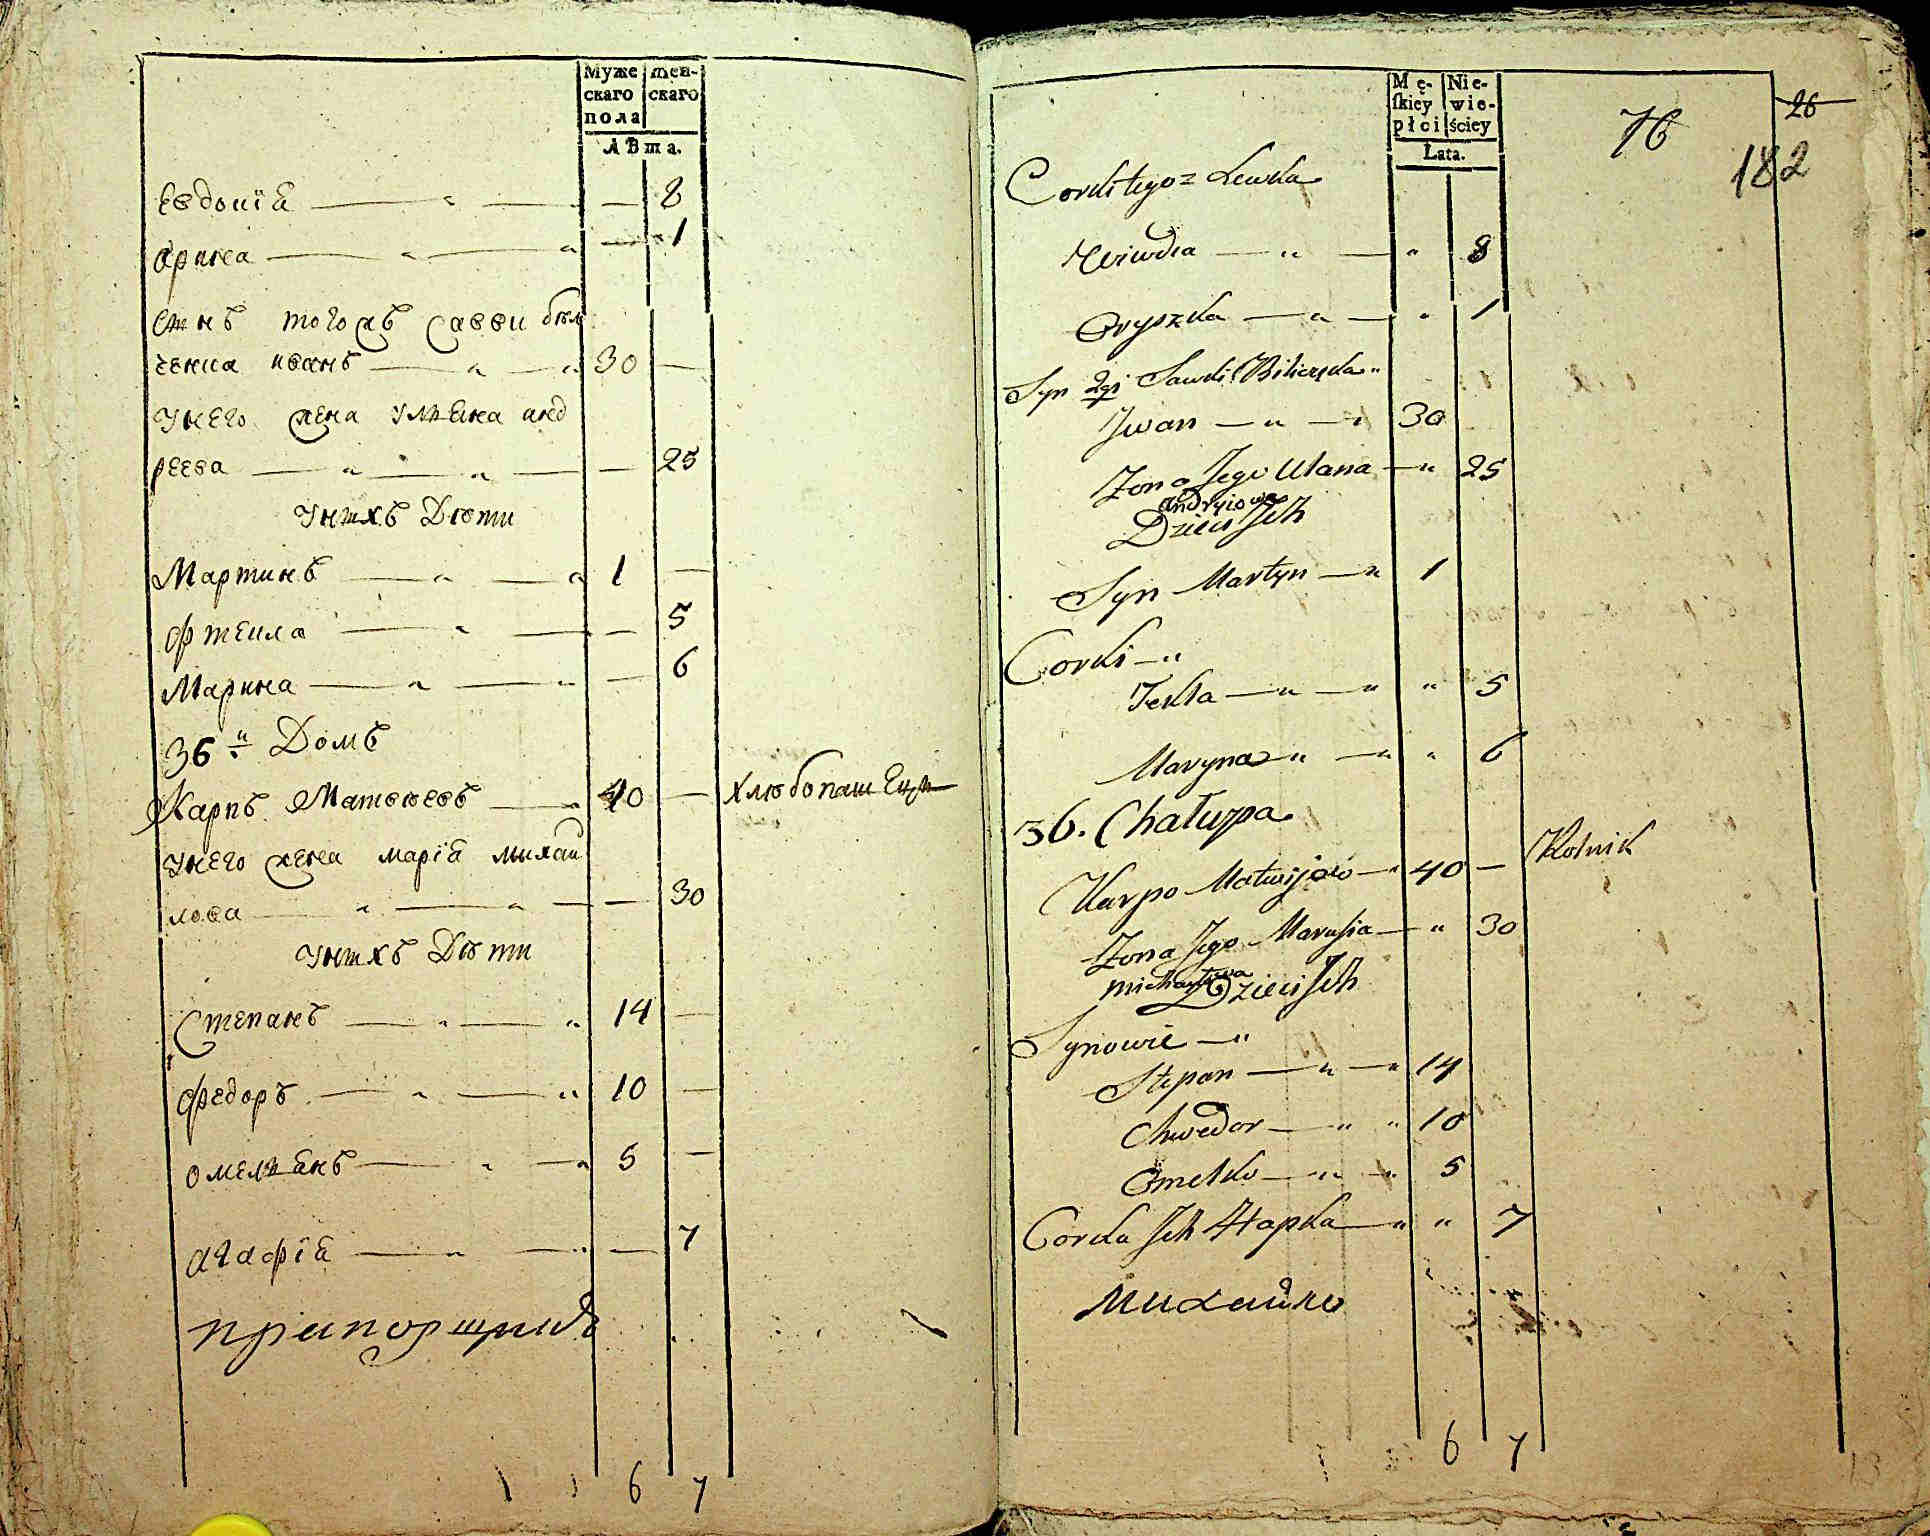 Муже
скаго
пола
жен-
скаго
лѣта.
Евдокія — „ — — 8
Ѻрина — „ — „ — 1
Синъ тогожъ Савви бѣл
ченка иванъ — „ — „ 30 —
Унего жена Улияна анд
реева — „ — „ — — 25
Унихъ Дѣти
Мартинъ — „ — „ 1 —
Фтекла — „ — — 5
Марина — „ — „ — 6
36й Домъ
Карпъ Матвѣевъ — „ 40 — хлѣбопашецъ
Унего жена марія михай
лова — „ — „ — — 30
Унихъ Дѣти
Степанъ — „ — „ 14 —
Федоръ — „ — „ 10 —
Омелиянъ — „ — „ 5 —
Агафія — „ — „ — 7
прапорщикъ
6 7
Mę-
ſkiey
płci
Nie-
wie-
ściey
Lata.
76
26
182
Corki tegoz Lewka
Wiwdia — „ — „ 8
Oryszka — „ — „ 1
Syn 2gi Sawki Biliczęka „
Jwan — „ — „ 30
Zona Jego Ulana — „ 25
andryiowa
Dzieci Jch
Syn Martyn — „ 1
Corki — „
Tekla — „ — „ „ 5
Maryna „ — „ „ 6
36. Chałupa
Karpo Matwijow — „ 40 — Rolnik
Zona Jego Marusia — „ 30
michayłowa
Dzieci Jch
Synowie — „
Stepan — „ — „ 14
Chwedor — „ „ 10
Omelko — „ — „ 5
Corka Jch Hapka — „ „ 7
Михайло
6 7